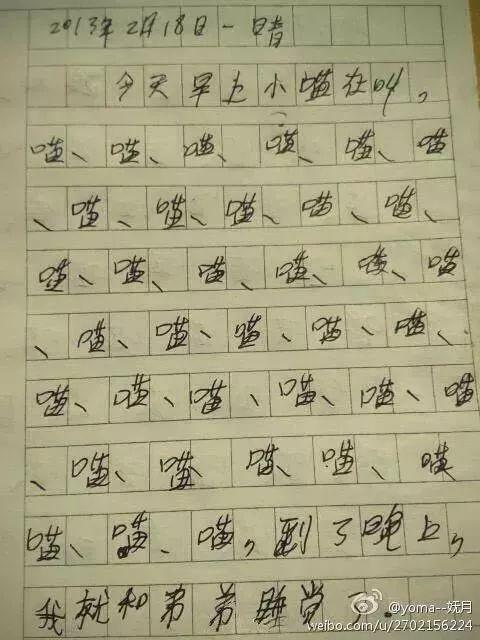 2013年2月18日一晴
今天早上小喵在叫,
喵、喵、喵、喵、喵、喵
、喵、喵、喵、喵、喵、
喵、喵、喵、喵、喵、喵
、喵、喵、喵、喵、喵、
喵、喵、喵、喵、喵、喵
、喵、喵、喵、喵、喵
喵、喵、喵,到了晚上,
我就和弟弟睡觉了.
@yoma--妩月
weibo.com/u/2702156224